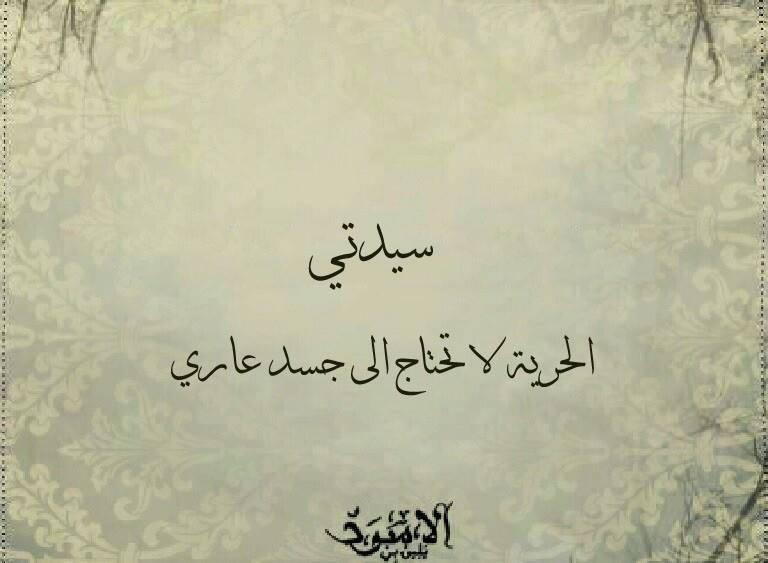 سيدتي
الحرية لا تحتاج الى جسد عاري